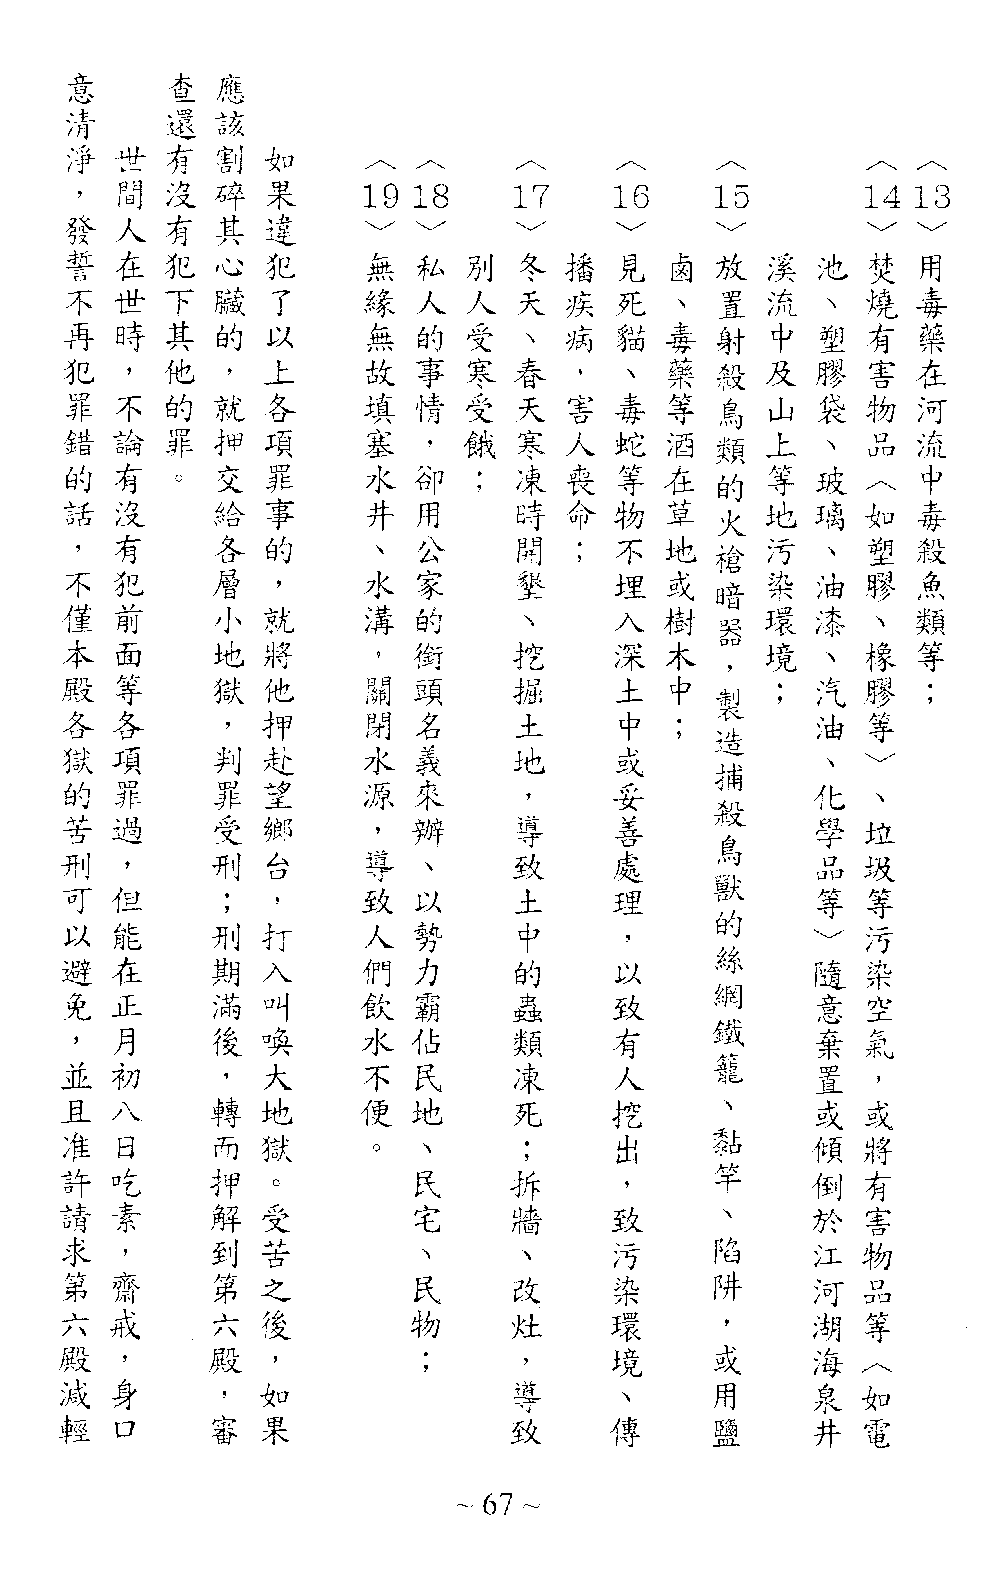 〈13〉用毒藥在河流中毒殺魚類等；
〈14〉焚燒有害物品〈如塑膠、橡膠等〉、垃圾等污染空氣，或將有害物品等〈如電
池、塑膠袋、玻璃、油漆、汽油、化學品等〉隨意棄置或傾倒於江河湖海泉井
溪流中及山上等地污染環境；
〈15〉放置射殺鳥類的火槍暗器，製造捕殺鳥獸的絲網鐵籠、黏竿、陷阱，或用鹽
鹵、毒藥等酒在草地或樹木中；
〈16〉見死貓、毒蛇等物不埋入深土中或妥善處理，以致有人挖出，致污染環境、傳
播疾病，害人喪命；
〈17〉冬天、春天寒凍時開墾、挖掘土地，導致土中的蟲類凍死；拆牆、改灶，導致
別人受寒受餓；
〈18〉私人的事情，卻用公家的銜頭名義來辦、以勢力霸佔民地、民宅、民物；
〈19〉無緣無故填塞水井、水溝，關閉水源，導致人們飲水不便。
如果違犯了以上各項罪事的，就將他押赴望鄉台，打入叫喚大地獄。受苦之後，如果
應該割碎其心臟的，就押交給各層小地獄，判罪受刑；刑期滿後，轉而押解到第六殿，審
查還有沒有犯下其他的罪。
世間人在世時，不論有沒有犯前面等各項罪過，但能在正月初八日吃素，齋戒，身口
意清淨，發誓不再犯罪錯的話，不僅本殿各獄的苦刑可以避免，並且准許請求第六殿減輕
~67~